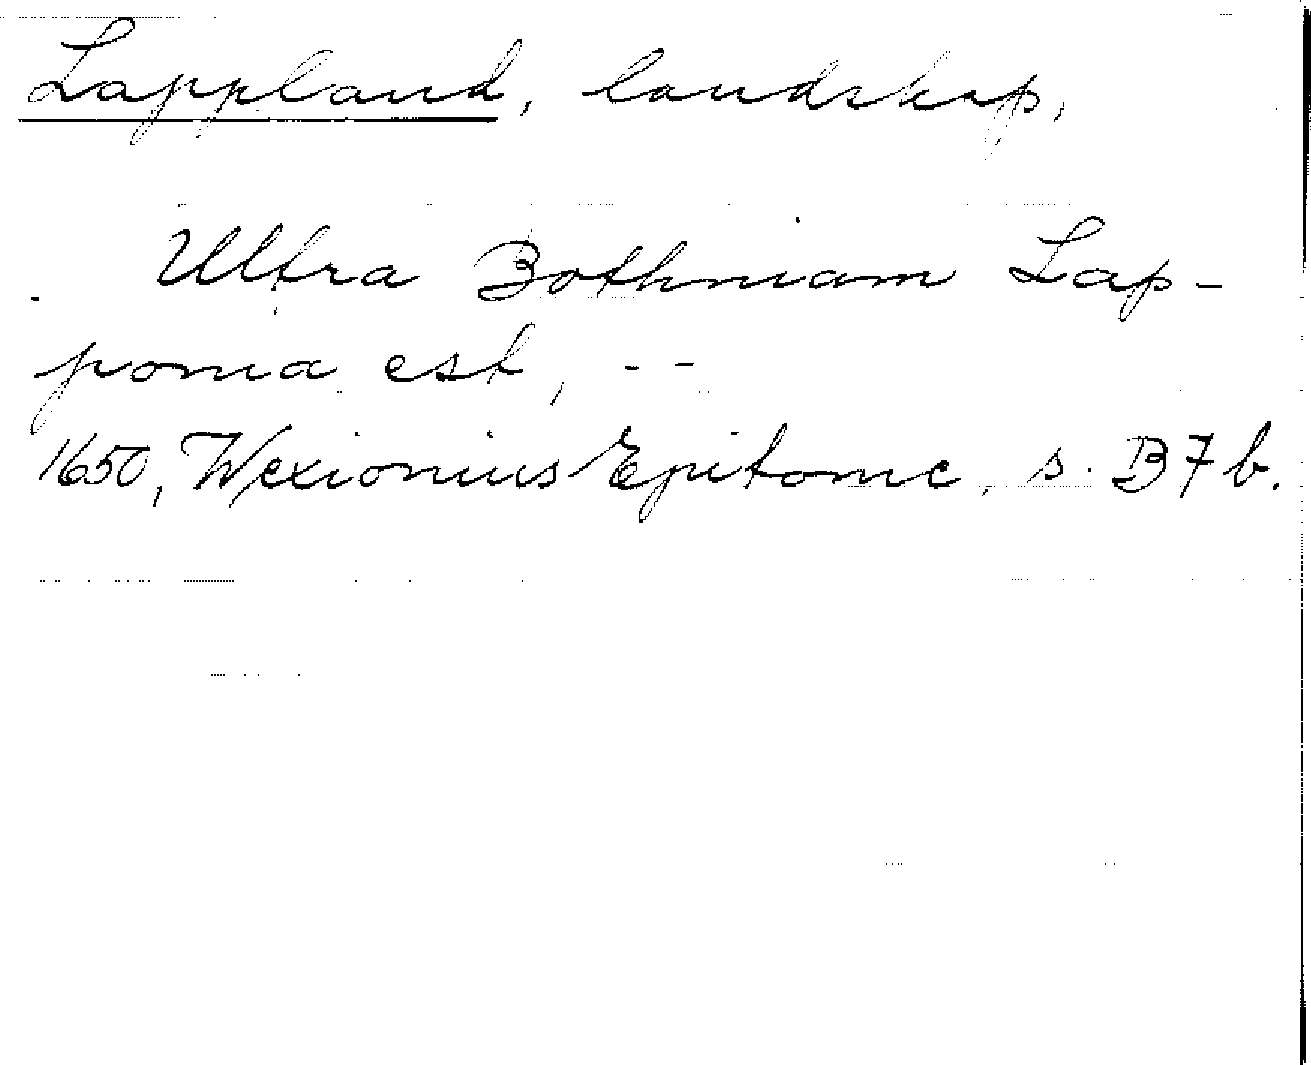 Lappland, landskap,
Ultra Bothniam Lap-
ponia est, --
1650, Wexionius Epitome, s. B7b.